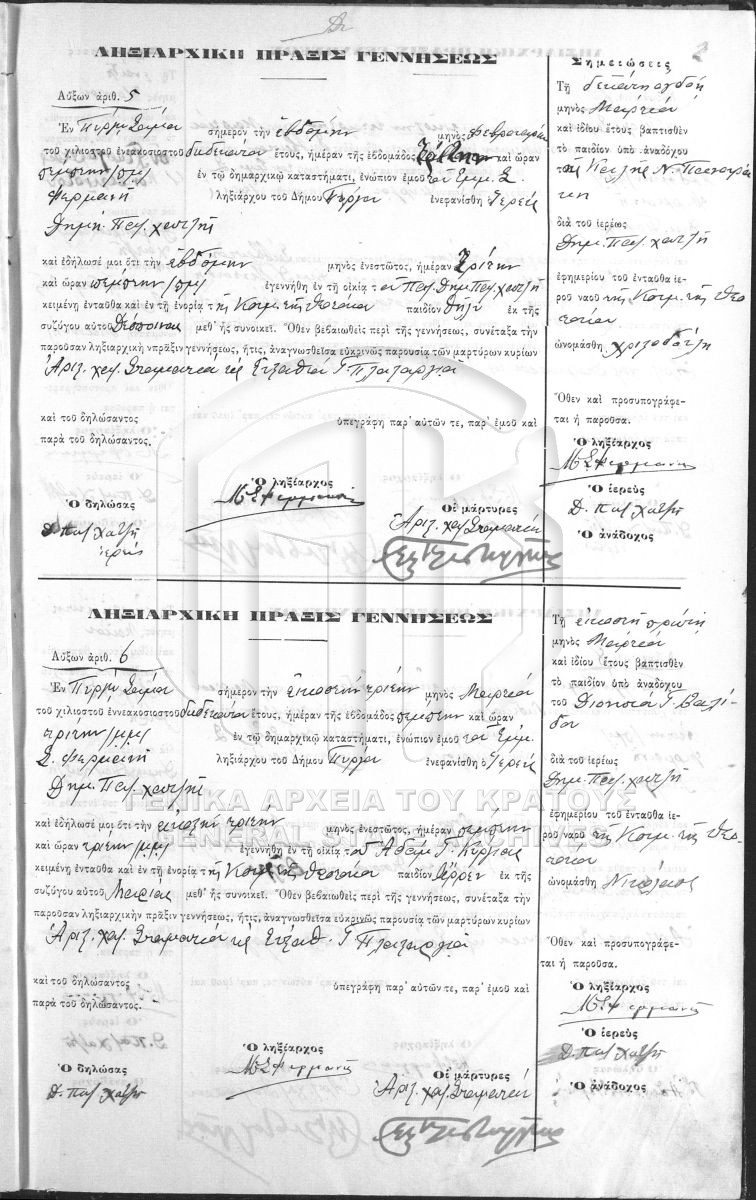 ΛΗΞΙΑΡΧΙΚΗ ΠΡΑΞΙΣ ΓΕΝΝΗΣΕΩΣ
Αὔξων ἀριθ. 5
Ἐν Πύργῳ Σάμου σήμερον τὴν ἑβδόμην μηνὸς Φεβρουαρίου
τοῦ χιλιοστοῦ ἐννεακοσιοστοῦ δωδεκάτου ἔτους, ἡμέραν τῆς ἑβδομάδος Τρίτην καὶ ὥραν
πέμπτην /μμ/ ἐν τῷ δημαρχικῷ καταστήματι, ἐνώπιον ἐμοῦ τοῦ Ἐμμ. Σ.
Φερμανῆ ληξιάρχου τοῦ Δήμου Πύργου ἐνεφανίσθη ὁ Ἱερεὺς
Δημ. Παπ. χατζῆ
καὶ ἐδήλωσέ μοι ὅτι τὴν ἑβδόμην μηνὸς ἐνεστῶτος, ἡμέραν Τρίτην
καὶ ὥραν πέμπτην /πμ/ ἐγεννήθη ἐν τῇ οἰκίᾳ τοῦ Παπ. Δημ. Παπ. χατζῆ
κειμένῃ ἐνταῦθα καὶ ἐν τῇ ἐνορίᾳ τῆς Κοιμ. τῆς Θεοτόκου παιδίον θῆλυ ἐκ τῆς
συζύγου αὐτοῦ Δέσποινας μεθ' ἧς συνοικεῖ. Ὅθεν βεβαιωθεὶς περὶ τῆς γεννήσεως, συνέταξα τὴν
παροῦσαν ληξιαρχικὴν πρᾶξιν γεννήσεως, ἥτις, ἀναγνωσθεῖσα εὐκρινῶς παρουσίᾳ τῶν μαρτύρων κυρίων
Ἀριστ. χατ. Σταματίου
καὶ τοῦ δηλώσαντος, ὑπεγράφη παρ' αὐτῶν τε, παρ' ἐμοῦ καὶ
παρὰ τοῦ δηλώσαντος.
Ὁ ληξίαρχος
Μ Σ Φερμανῆς
Ὁ δηλώσας
Δ. Παπ Χατζῆ
ἱερεύς
Οἱ μάρτυρες
Ἀριστ. χατ. Σταματίου
Σημειώσεις
Τῇ δεκάτῃ ὀγδόῃ
μηνὸς Μαρτίου
καὶ ἰδίου ἔτους βαπτισθὲν
τὸ παιδίον ὑπὸ ἀναδόχου
διὰ τοῦ ἱερέως
Δημ. Παπ. χατζῆ
ἐφημερίου τοῦ ἐνταῦθα ἱε-
ροῦ ναοῦ τῆς Κοιμ. τῆς Θεο
τόκου
ὠνομάσθη
Ὅθεν καὶ προσυπογράφε-
ται ἡ παροῦσα.
Ὁ ληξίαρχος
Μ Σ Φερμανῆς
Ὁ ἱερεὺς
Δ. Παπ Χατζῆ
Ὁ ἀνάδοχος
ΛΗΞΙΑΡΧΙΚΗ ΠΡΑΞΙΣ ΓΕΝΝΗΣΕΩΣ
Αὔξων ἀριθ. 6
Ἐν Πύργῳ Σάμου σήμερον τὴν εἰκοστὴν τρίτην μηνὸς Μαρτίου
τοῦ χιλιοστοῦ ἐννεακοσιοστοῦ δωδεκάτου ἔτους, ἡμέραν τῆς ἑβδομάδος πέμπτην καὶ ὥραν
τρίτην /μμ/ ἐν τῷ δημαρχικῷ καταστήματι, ἐνώπιον ἐμοῦ τοῦ Ἐμμ.
Σ. Φερμανῆ ληξιάρχου τοῦ Δήμου Πύργου ἐνεφανίσθη ὁ Ἱερεὺς
Δημ. Παπ. χατζῆ
ΓΕΝΙΚΑ ΑΡΧΕΙΑ ΤΟΥ ΚΡΑΤΟΥΣ
καὶ ἐδήλωσέ μοι ὅτι τὴν εἰκοστὴν τρίτην μηνὸς ἐνεστῶτος, ἡμέραν πέμπτην
καὶ ὥραν τρίτην /μμ/ ἐγεννήθη ἐν τῇ οἰκίᾳ τοῦ Ἀδὰμ Γ.
κειμένῃ ἐνταῦθα καὶ ἐν τῇ ἐνορίᾳ τῆς Κοιμ. τῆς Θεοτόκου παιδίον ἄρρεν ἐκ τῆς
συζύγου αὐτοῦ Μαρίας μεθ' ἧς συνοικεῖ. Ὅθεν βεβαιωθεὶς περὶ τῆς γεννήσεως, συνέταξα τὴν
παροῦσαν ληξιαρχικὴν πρᾶξιν γεννήσεως, ἥτις, ἀναγνωσθεῖσα εὐκρινῶς παρουσίᾳ τῶν μαρτύρων κυρίων
Ἀριστ. χατ. Σταματίου
καὶ τοῦ δηλώσαντος ὑπεγράφη παρ' αὐτῶν τε, παρ' ἐμοῦ καὶ
παρὰ τοῦ δηλώσαντος.
Ὁ ληξίαρχος
Μ Σ Φερμανῆς
Ὁ δηλώσας
Δ. Παπ Χατζῆ
Οἱ μάρτυρες
Ἀριστ. χατ. Σταματίου
Τῇ εἰκοστῇ πρώτῃ
μηνὸς Μαρτίου
καὶ ἰδίου ἔτους βαπτισθὲν
τὸ παιδίον ὑπὸ ἀναδόχου
διὰ τοῦ ἱερέως
Δημ. Παπ. χατζῆ
ἐφημερίου τοῦ ἐνταῦθα ἱε-
ροῦ ναοῦ τῆς Κοιμ. τῆς Θεο-
τόκου
ὠνομάσθη Νικόλαος
Ὅθεν καὶ προσυπογράφε-
ται ἡ παροῦσα.
Ὁ ληξίαρχος
Μ Σ Φερμανῆς
Ὁ ἱερεὺς
Δ. Παπ Χατζῆ
Ὁ ἀνάδοχος